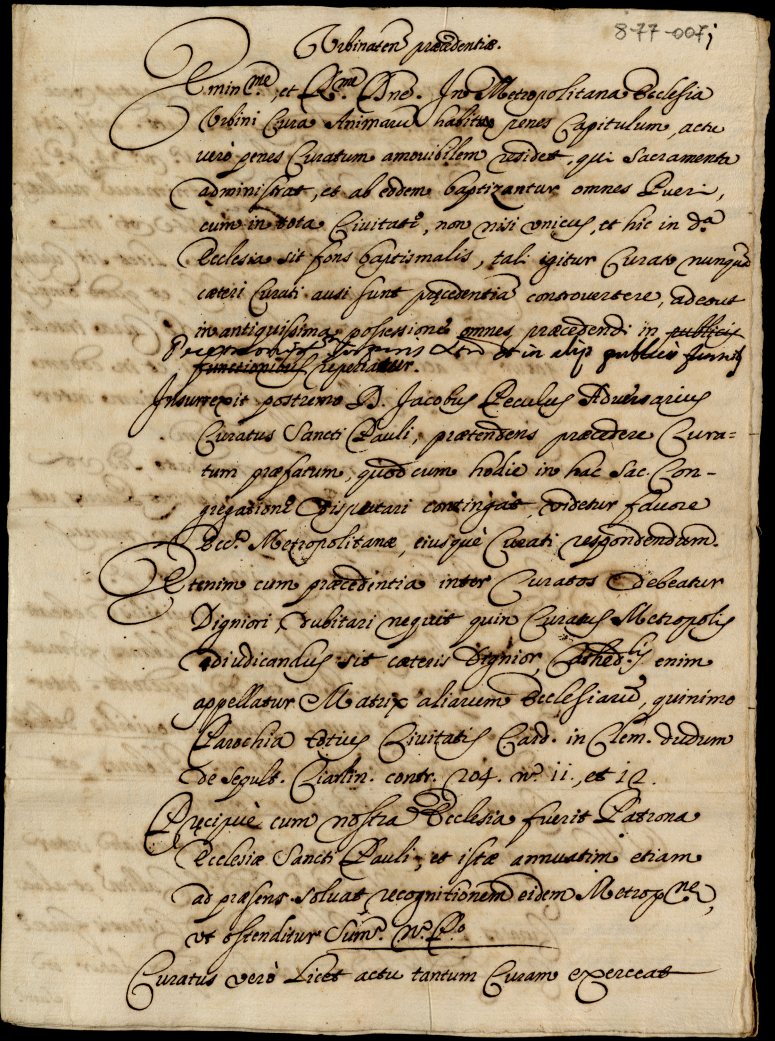 8-77-007;
Urbinaten præcedentiæ.
Emin.me, et R.me Dne. In Metropolitana Ecclesia
Urbini Cura Animarū habitu penes Capitulum, actu
verò penes Curatum amovibilem residet, qui Sacramenta
administrat, et ab eodem baptizantur omnes Pueri,
cum in tota Civitate, non nisi unicus, et hic in d.a
Ecclesia sit fons baptismalis, tali igitur Curato nunquā
cæteri Curati ausi sunt præcedentiā controvertere, adeout
in antiquissima possessione omnes præcedendi in publicis
et in alijs publicis
functionibus reperiatur.
Insurrexit postremo D. Jacobus Peculus Adversarius
Curatus Sancti Pauli, prætendens præcedere Cura=
tum præfatum, quod cum hodie in hac Sac. Con-
gregatione disputari contingat, videtur favore
Ecc.æ Metropolitanæ, eiusque Curati respondendum.
Etenim cum præcedentia inter Curatos debeatur
Digniori, dubitari nequit quin Curatus Metropolis
adiudicandus sit cæteris Dignior, Cathed.lis enim
appellatur Matrix aliarum Ecclesiarū, quinimo
Parochia totius Civitatis Card. in Clem. dudum
de sepult. Ciarlin. contr. 204. n.º 11., et 12.
Præcipuè cum nostra Ecclesia fuerit Patrona
Ecclesiæ Sancti Pauli, et istæ annuatim etiam
ad præsens solvat recognitionem eidem Metrop.ne,
ut ostenditur Sum.º N.º P.º
Curatus verò Licet actu tantum Curam exerceat